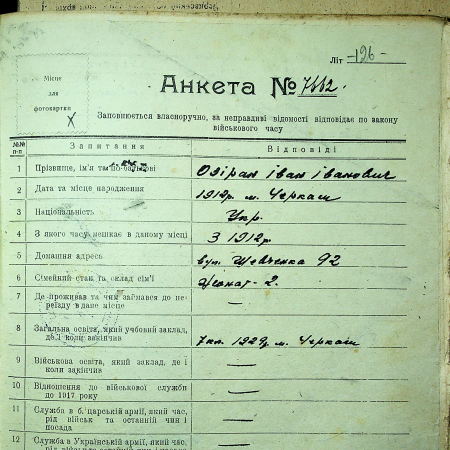 Літ -126-
Місце
для
фотокартки
Анкета № 7662.
Заповнюється власноручно, за неправдиві відомості відповідає по закону
військового часу
№№ п-п
Запитання
Відповіді
1 Прізвище, ім'я та по-батькові
Озіран Іван Іванович
2 Дата та місце народження
1912р. м. Черкаси
3 Національність
Укр.
4 З якого часу мешкає в даному місці
З 1912р
5 Домашня адреса
вул. Шевченка 92
6 Сімейний стан та склад сім'ї
Жонат - 2.
7 Де проживав та чим займався до пе-
реїзду в дане місце
—
8 Загальна освіта, який учбовий заклад,
де і коли закінчив
7кл. 1929р. м. Черкаси
9 Військова освіта, який заклад, де і
коли закінчив
—
10 Відношення до військової служби
до 1917 року
—
11 Служба в б. царській армії, який час,
рід військ та останній чин і
посада
—
12 Служба в Українській армії, який час,